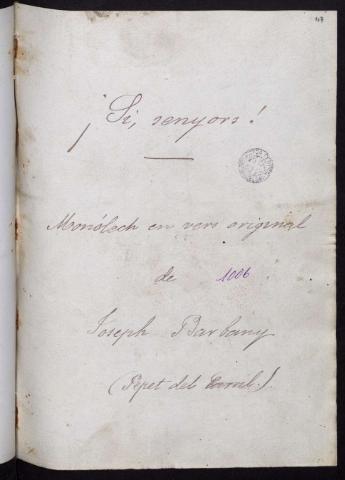 47
¡Si, senyors!
Monólech en vers original
de 1006
Joseph Barbany
(Pepet del Carril.)